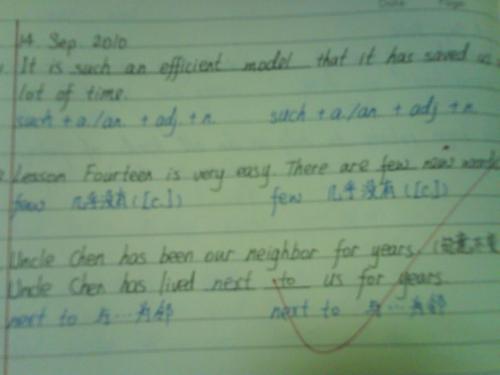 Date Page
14. Sep. 2010
It is such an efficient model that it has saved us
lot of time.
such + a/an + adj + n. such + a/an + adj + n.
Lesson Fourteen is very easy. There are few new words
few 几乎没有([c.]) few 几乎没有([c.])
Uncle Chen has been our neighbor for years.
Uncle Chen has lived next to us for years
next to 与…为邻 next to 与…为邻